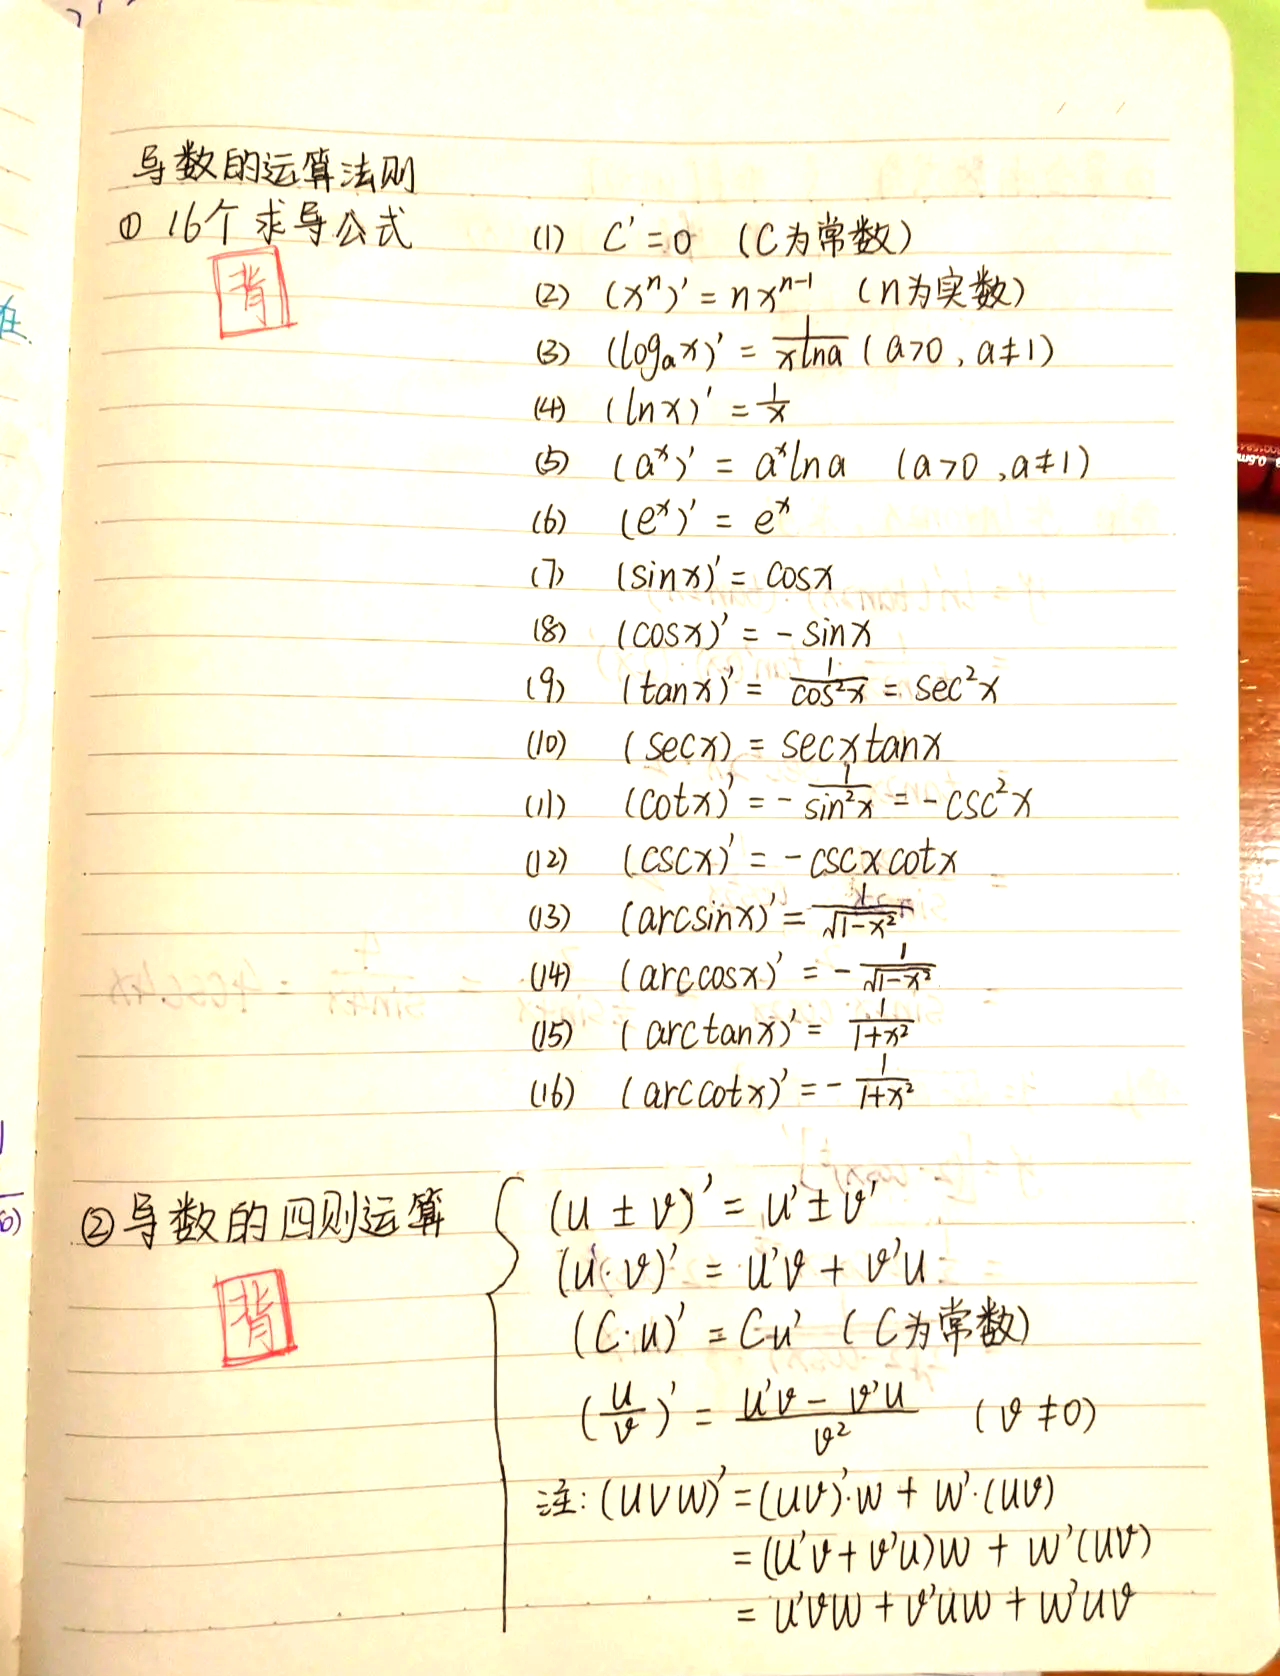 导数的运算法则
① 16个求导公式
背
(1) C' = 0 (C为常数)
(2) (xⁿ)' = nxⁿ⁻¹ (n为实数)
(3) (logₐx)' = 1/(xlna) (a>0, a≠1)
(4) (lnx)' = 1/x
(5) (aˣ)' = aˣlna (a>0, a≠1)
(6) (eˣ)' = eˣ
(7) (sinx)' = cosx
(8) (cosx)' = -sinx
(9) (tanx)' = 1/cos²x = sec²x
(10) (secx) = secxtanx
(11) (cotx)' = -1/sin²x = -csc²x
(12) (cscx)' = -cscxcotx
(13) (arcsinx)' = 1/√(1-x²)
(14) (arccosx)' = -1/√(1-x²)
(15) (arctanx)' = 1/(1+x²)
(16) (arccotx)' = -1/(1+x²)
② 导数的四则运算
背
(u ± v)' = u' ± v'
(u·v)' = u'v + v'u
(C·u)' = Cu' (C为常数)
(u/v)' = (u'v - v'u)/v² (v≠0)
注: (uvw)' = (uv)'·w + w'·(uv)
= (u'v + v'u)w + w'(uv)
= u'vw + v'uw + w'uv